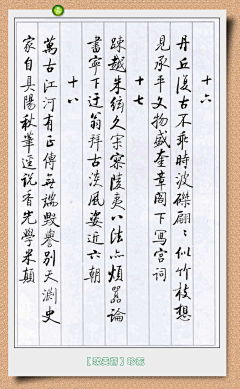 十六
丹丘復古不乘時波磔翩〻似竹枝想
見承平文物盛奎章閣下寫宮詞
十七
疎越朱絃久寂寥陵夷八法亦煩囂論
書寧下迂翁拜古淡風姿近六朝
十八
萬古江河有正傳無端毀譽別天淵史
家自具陽秋筆逕說香光學米顛